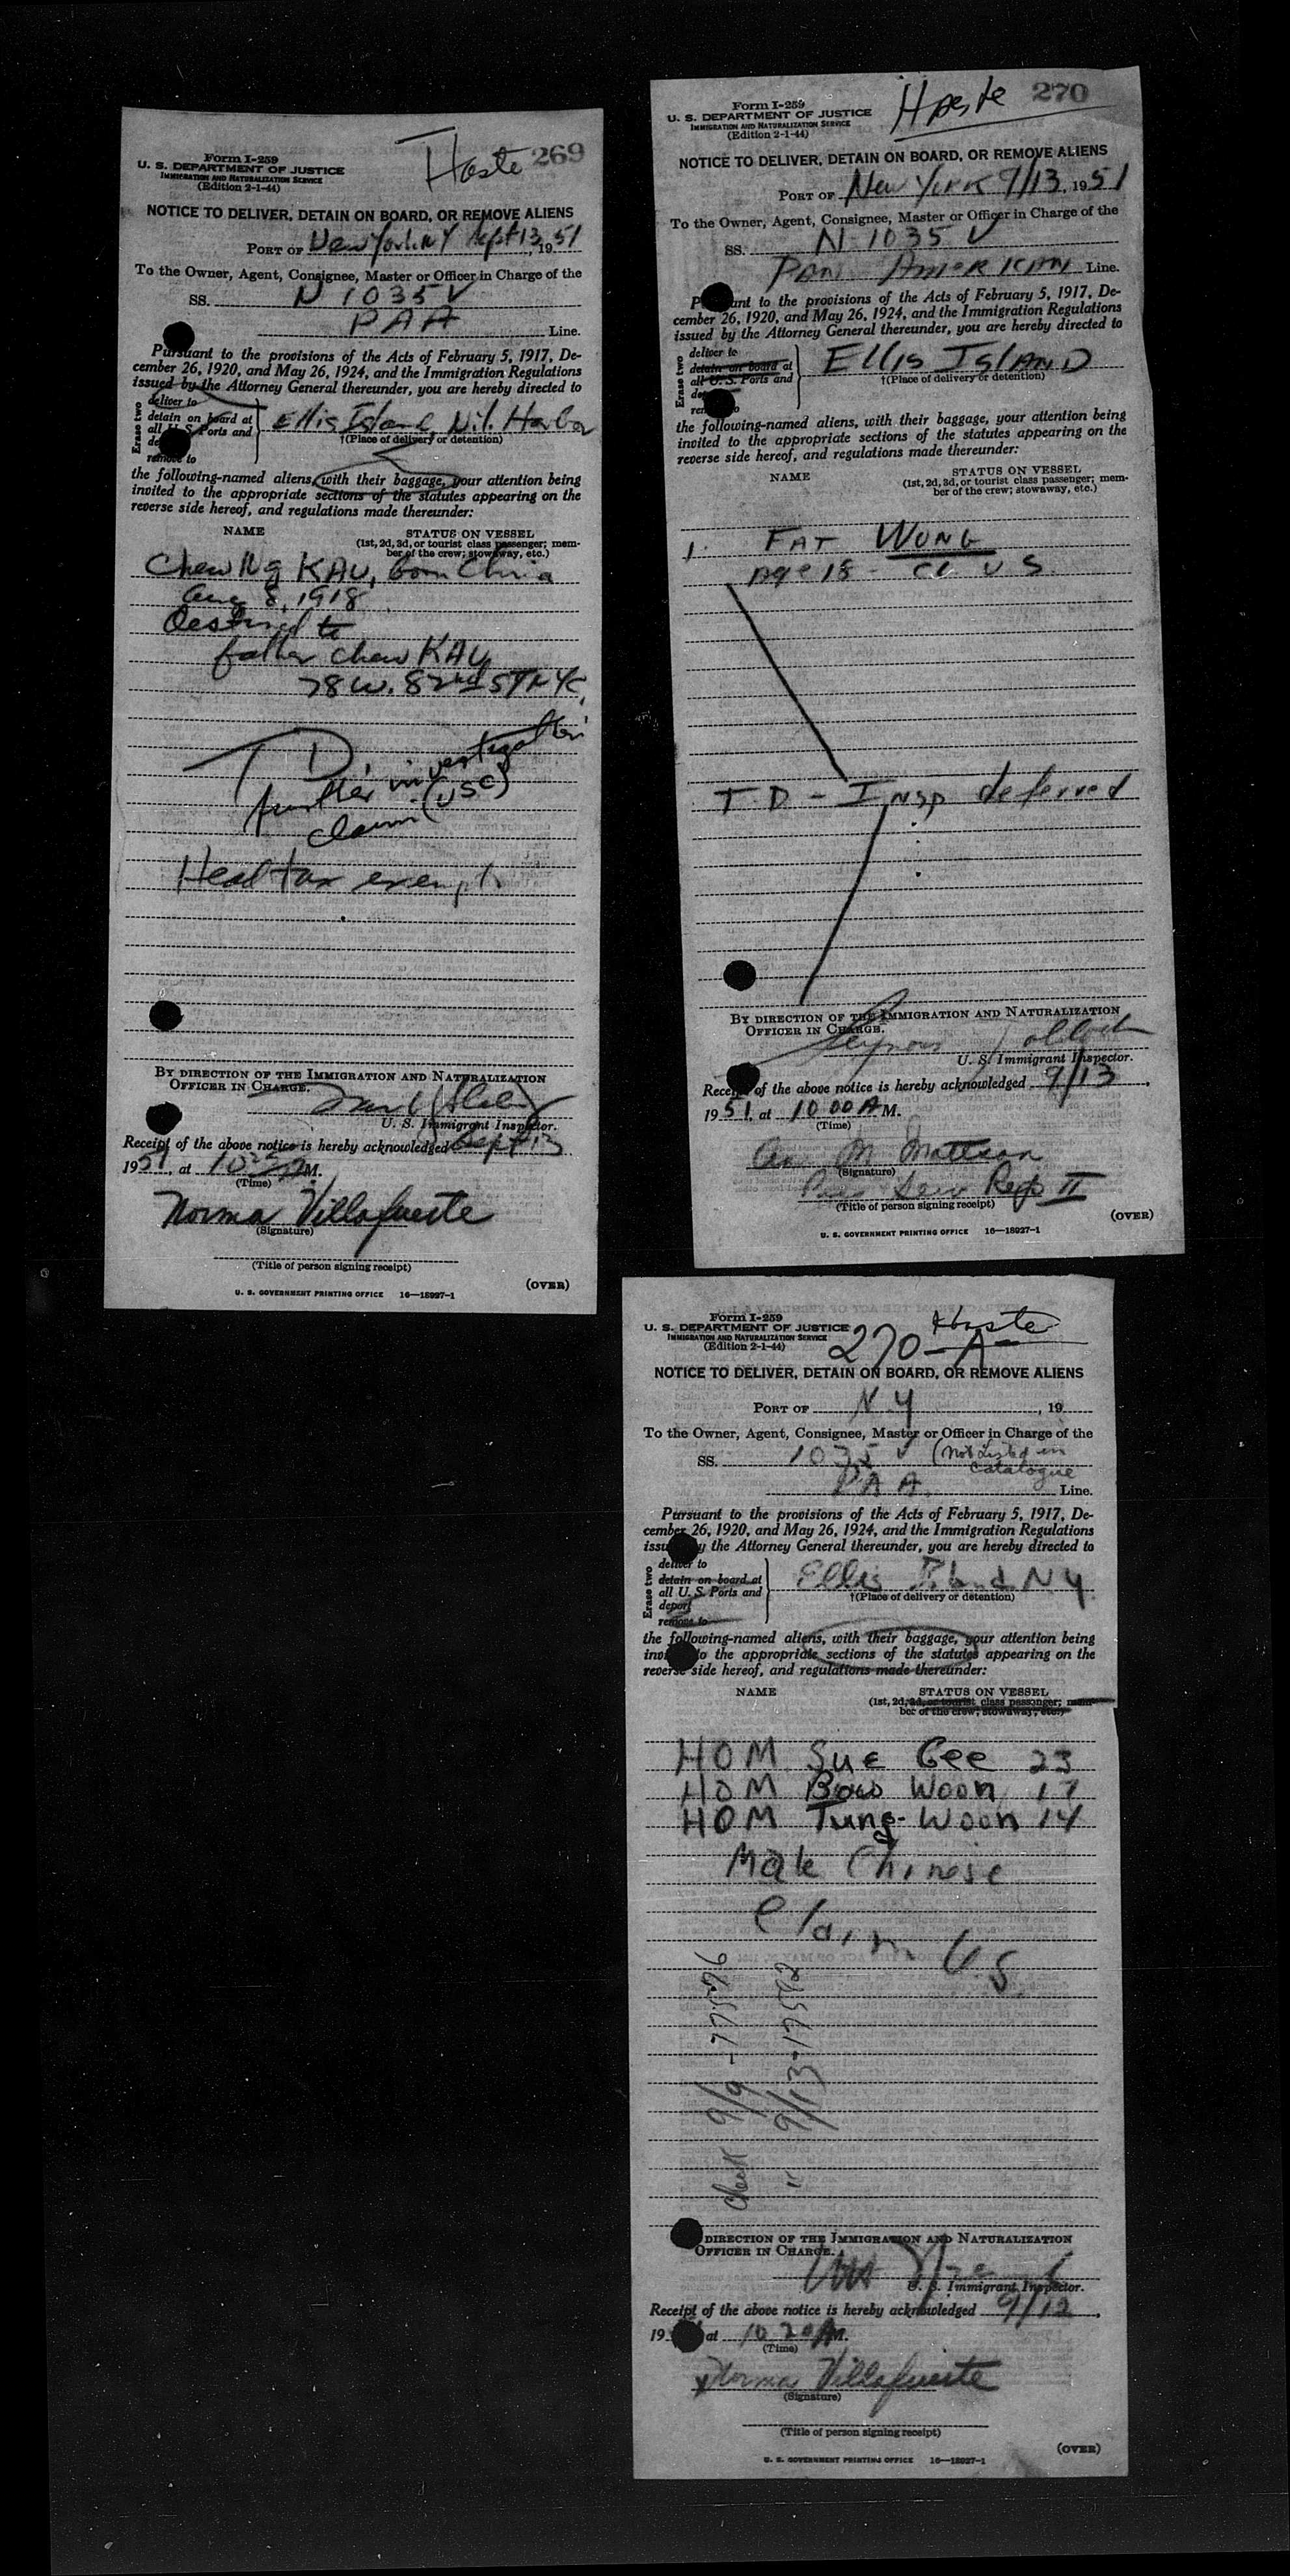 Form I-259
U. S. DEPARTMENT OF JUSTICE
IMMIGRATION AND NATURALIZATION SERVICE
(Edition 2-1-44)
Haste 269
NOTICE TO DELIVER, DETAIN ON BOARD, OR REMOVE ALIENS
PORT OF New York NY Sept 13, 1951
To the Owner, Agent, Consignee, Master or Officer in Charge of the
SS. N 1035 V
PAA Line.
Pursuant to the provisions of the Acts of February 5, 1917, De-
cember 26, 1920, and May 26, 1924, and the Immigration Regulations
issued by the Attorney General thereunder, you are hereby directed to
Erase two
deliver to
detain on board at
all U. S. Ports and
de
remove to
Ellis Island, N.Y. Harbor
†(Place of delivery or detention)
the following-named aliens, with their baggage, your attention being
invited to the appropriate sections of the statutes appearing on the
reverse side hereof, and regulations made thereunder:
NAME
STATUS ON VESSEL
(1st, 2d, 3d, or tourist class passenger; mem-
ber of the crew; stowaway, etc.)
Chew Ng KAU, born China
Aug 8, 1918
Destined to
father Chew KAU
78 W. 82nd ST NYC,
T D,
further investigation
(USC)
claim
Head tax exempt
BY DIRECTION OF THE IMMIGRATION AND NATURALIZATION
OFFICER IN CHARGE.
U. S. Immigrant Inspector.
Receipt of the above notice is hereby acknowledged Sept 13
1951, at 10 M.
(Time)
Norma Villafuerte
(Signature)
(Title of person signing receipt)
(OVER)
U. S. GOVERNMENT PRINTING OFFICE 16—18927-1
Form I-259
U. S. DEPARTMENT OF JUSTICE
IMMIGRATION AND NATURALIZATION SERVICE
(Edition 2-1-44)
Haste 270
NOTICE TO DELIVER, DETAIN ON BOARD, OR REMOVE ALIENS
PORT OF New York 9/13, 1951
To the Owner, Agent, Consignee, Master or Officer in Charge of the
SS. N-1035 V
PAN AMERICAN Line.
P ant to the provisions of the Acts of February 5, 1917, De-
cember 26, 1920, and May 26, 1924, and the Immigration Regulations
issued by the Attorney General thereunder, you are hereby directed to
Erase two
deliver to
detain on board at
all U. S. Ports and
de
re to
ELLIS ISLAND
†(Place of delivery or detention)
the following-named aliens, with their baggage, your attention being
invited to the appropriate sections of the statutes appearing on the
reverse side hereof, and regulations made thereunder:
NAME
STATUS ON VESSEL
(1st, 2d, 3d, or tourist class passenger; mem-
ber of the crew; stowaway, etc.)
1. FAT WONG
Age 18 - Cl U S
T. D - INSP deferred
BY DIRECTION OF THE IMMIGRATION AND NATURALIZATION
OFFICER IN CHARGE.
U. S. Immigrant Inspector.
Receipt of the above notice is hereby acknowledged 9/13,
1951, at 10 00 A M.
(Time)
M Mattson
(Signature)
Serv Rep II
(Title of person signing receipt)
(OVER)
U. S. GOVERNMENT PRINTING OFFICE 16—18927-1
Form I-259
U. S. DEPARTMENT OF JUSTICE
IMMIGRATION AND NATURALIZATION SERVICE
(Edition 2-1-44)
Haste
270-A
NOTICE TO DELIVER, DETAIN ON BOARD, OR REMOVE ALIENS
PORT OF N Y, 19
To the Owner, Agent, Consignee, Master or Officer in Charge of the
SS. 1035 V (Not Listed in
catalogue
PAA Line.
Pursuant to the provisions of the Acts of February 5, 1917, De-
cember 26, 1920, and May 26, 1924, and the Immigration Regulations
issu y the Attorney General thereunder, you are hereby directed to
Erase two
deliver to
detain on board at
all U. S. Ports and
deport
remove to
Ellis Island N Y
†(Place of delivery or detention)
the following-named aliens, with their baggage, your attention being
invi to the appropriate sections of the statutes appearing on the
reverse side hereof, and regulations made thereunder:
NAME
STATUS ON VESSEL
(1st, 2d, 3d, or tourist class passenger; mem-
ber of the crew; stowaway, etc.)
HOM Sue Gee 23
HOM Bow Woon 17
HOM Tung-Woon 14
Male Chinese
Claim U.S.
9/9 -77596
" 9/13-17592
DIRECTION OF THE IMMIGRATION AND NATURALIZATION
OFFICER IN CHARGE.
U. S. Immigrant Inspector.
Receipt of the above notice is hereby acknowledged 9/12,
19 at 10 20 A M.
(Time)
Norma Villafuerte
(Signature)
(Title of person signing receipt)
(OVER)
U. S. GOVERNMENT PRINTING OFFICE 16—18927-1